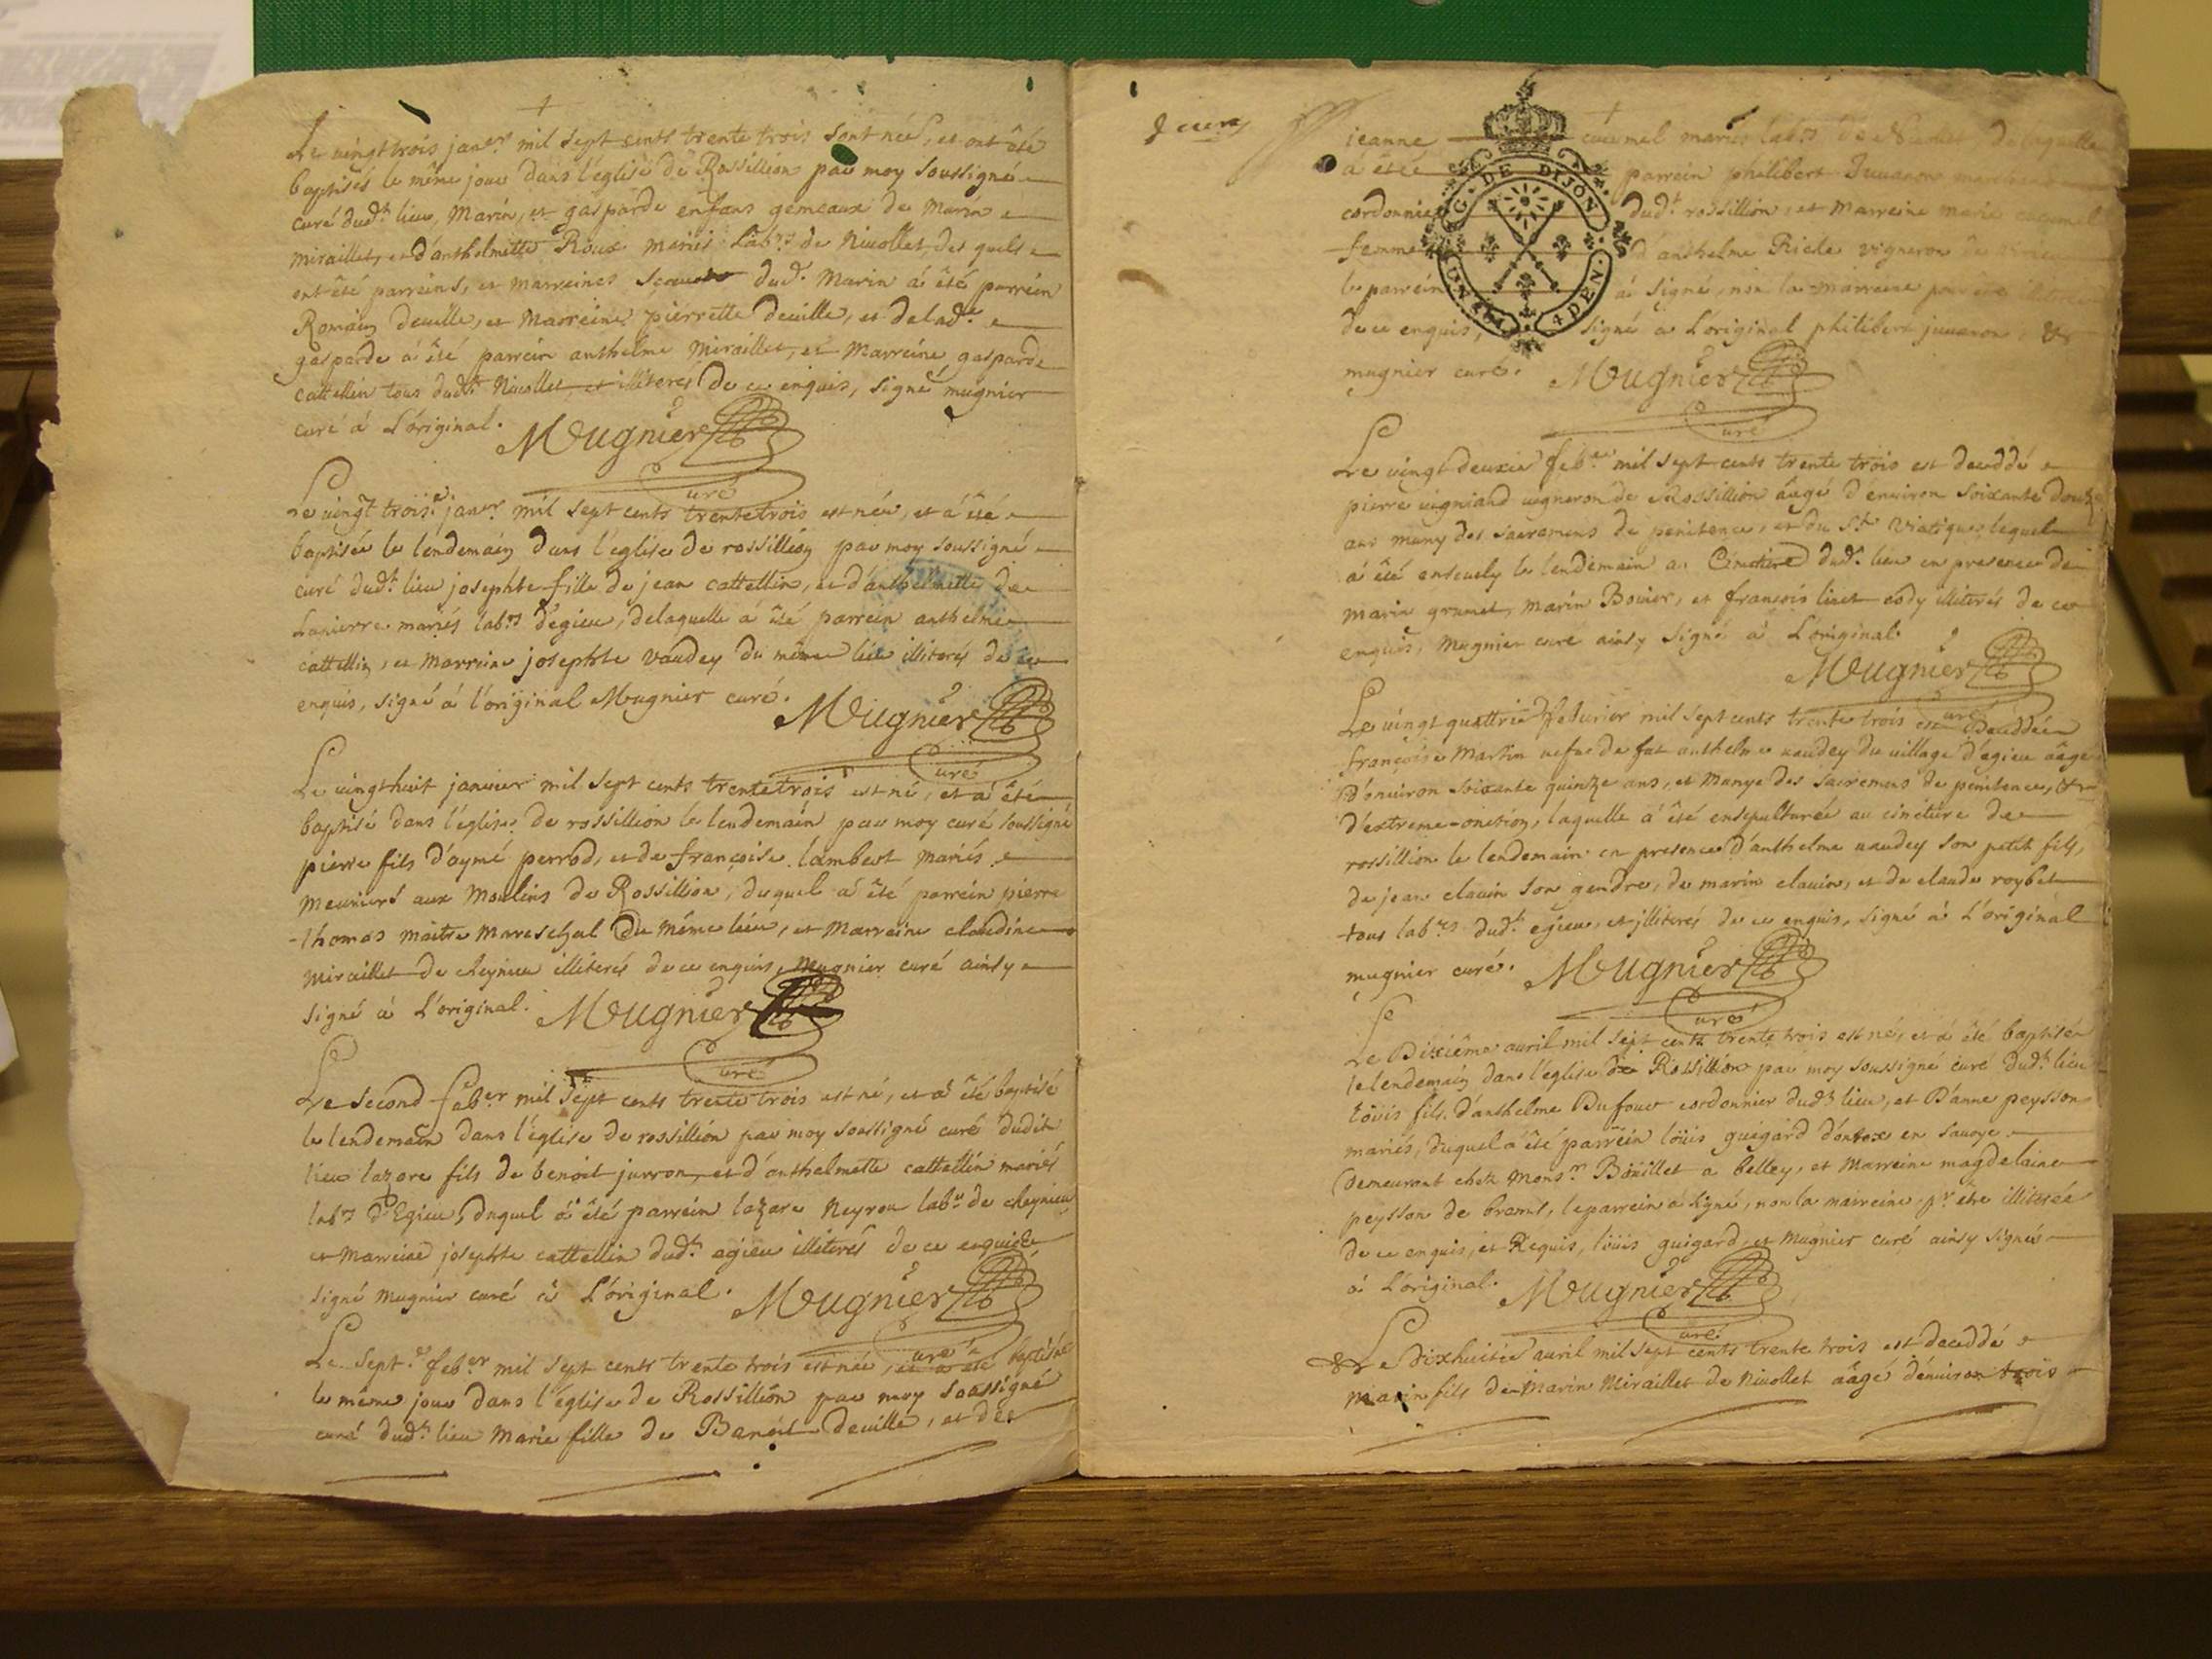 Le vingt trois jan.er mil sept cents trente trois sont née, et ont été
baptisés le même jour dans l'église de Rossillion par moy soussigné
curé dud.t lieu, Marin, et gasparde enfans gemeaux de Marin
miraillet, et d'anthelmette Roux mariés lab.rs de Nivollet, des quels
ont été parreins, et marreines sçavoir dud.t Marin á été parrein
Romain deville, et Marreine pierrette deville, et de lad.e
gasparde á été parrein anthelme Miraillet, et Marreine gasparde
cattellin tous dud.t Nivollet, et illiterés de ce enquis, signé mugnier
curé á L'original. Mugnier
curé
Le vingt trois.e jan.er mil sept cents trente trois est née, et á été
baptisée le lendemain dans l'eglise de rossillion par moy soussigné
curé dud.t lieu josephte fille de jean cattellin, et d'anthelmette de
Lapierre mariés lab.rs d'egieu, de laquelle á été parrein anthelme
cattellin, et Marreine josephte vaudey du même lieu illiterés de ce
enquis, signé á l'original Mugnier curé. Mugnier
curé
Le vingthuit janvier mil sept cents trente trois est né, et á été
baptisé dans l'église de rossillion le lendemain par moy curé soussigné
pierre fils d'aymé perrod, et de françoise lambert mariés
meuniers aux Moulins de Rossillion, duquel á été parrein pierre
Thomas maitre mareschal du même lieu, et Marreine claudine
miraillet de cheynieu illiterés de ce enquis, Mugnier curé ainsy
signé á L'original. Mugnier
curé
Le second feb.er mil sept cents trente trois est né, et á été baptisé
le lendemain dans l'église de rossillion par moy soussigné curé dudit
lieu lazare fils de benoit juvron, et d'anthelmette cattellin mariés
lab.rs d'Egieu, duquel á été parrein lazare Neyron lab.r de cheynieu
et Marreine josephte cattellin dud.t egieu illiterés de ce enquis
signé Mugnier curé á L'original. Mugnier
curé
Le sept.e feb.er mil sept cents trente trois est née, et á été baptisée
le même jour dans l'église de Rossillion par moy soussigné
curé dud.t lieu Marie fille de Benoit Deville, et de
jeanne cucumel mariés lab.rs de de laquelle
á été parrein philibert Juvanon
cordonnier dud.t rossillion, et Marreine marie cucumel
femme d'anthelme Riche vigneron de
le parrein á signé, non la marreine
de ce enquis, signé á L'original philibert juvanon, &
mugnier curé. Mugnier
curé
G. DE DIJON
UN 4 DEN.
Le vingt deuxie feb.er mil sept cents trente trois est deceddé
pierre vigniard vigneron de Rossillion áagé d'environ soixante douze
ans muny des sacremens de penitence, et du S.t Viatique, lequel
á été ensevely le lendemain au Cimetiere dud.t lieu en presence de
marin grumet, marin Bovier, et françois lizet illiterés de ce
enquis, Mugnier curé ainsy signé á L'original.
Mugnier
curé
Le vingt quattrie febvrier mil sept cents trente trois est deceddée
françoise Martin vefve de fut anthelme vaudey du village d'egieu áagée
d'environ soixante quinze ans, et Munye des sacremens de penitence, &
d'extreme-onction, laquelle á été ensepulturée au cimetiere de
rossillion le lendemain en presence d'anthelme vaudey son petit fils,
de jean clavin son gendre, de marin clavin, et de claude roybet
tous lab.rs dud.t egieu, et illiterés de ce enquis, signé á L'original
mugnier curé. Mugnier
curé
Le Dixiéme avril mil sept cents trente trois est né, et á été baptisé
le lendemain dans l'église de Rossillion par moy soussigné curé dud.t lieu
loüis fils d'anthelme Dufour cordonnier dud.t lieu, et d'anne peysson
mariés, duquel á été parrein loüis guigard d'ontex en savoye
Demeurant chez Mons.r Boüillet a belley, et Marreine magdelaine
peysson de brens, le parrein á signé, non la marreine p.r étre illiterée
de ce enquis, et Requis, loüis guigard, et Mugnier curé ainsy signés
á L'original. Mugnier
curé
Le dixhuitie avril mil sept cents trente trois est deceddé
marin fils de Marin Miraillet de Nivollet áagé d'environ trois